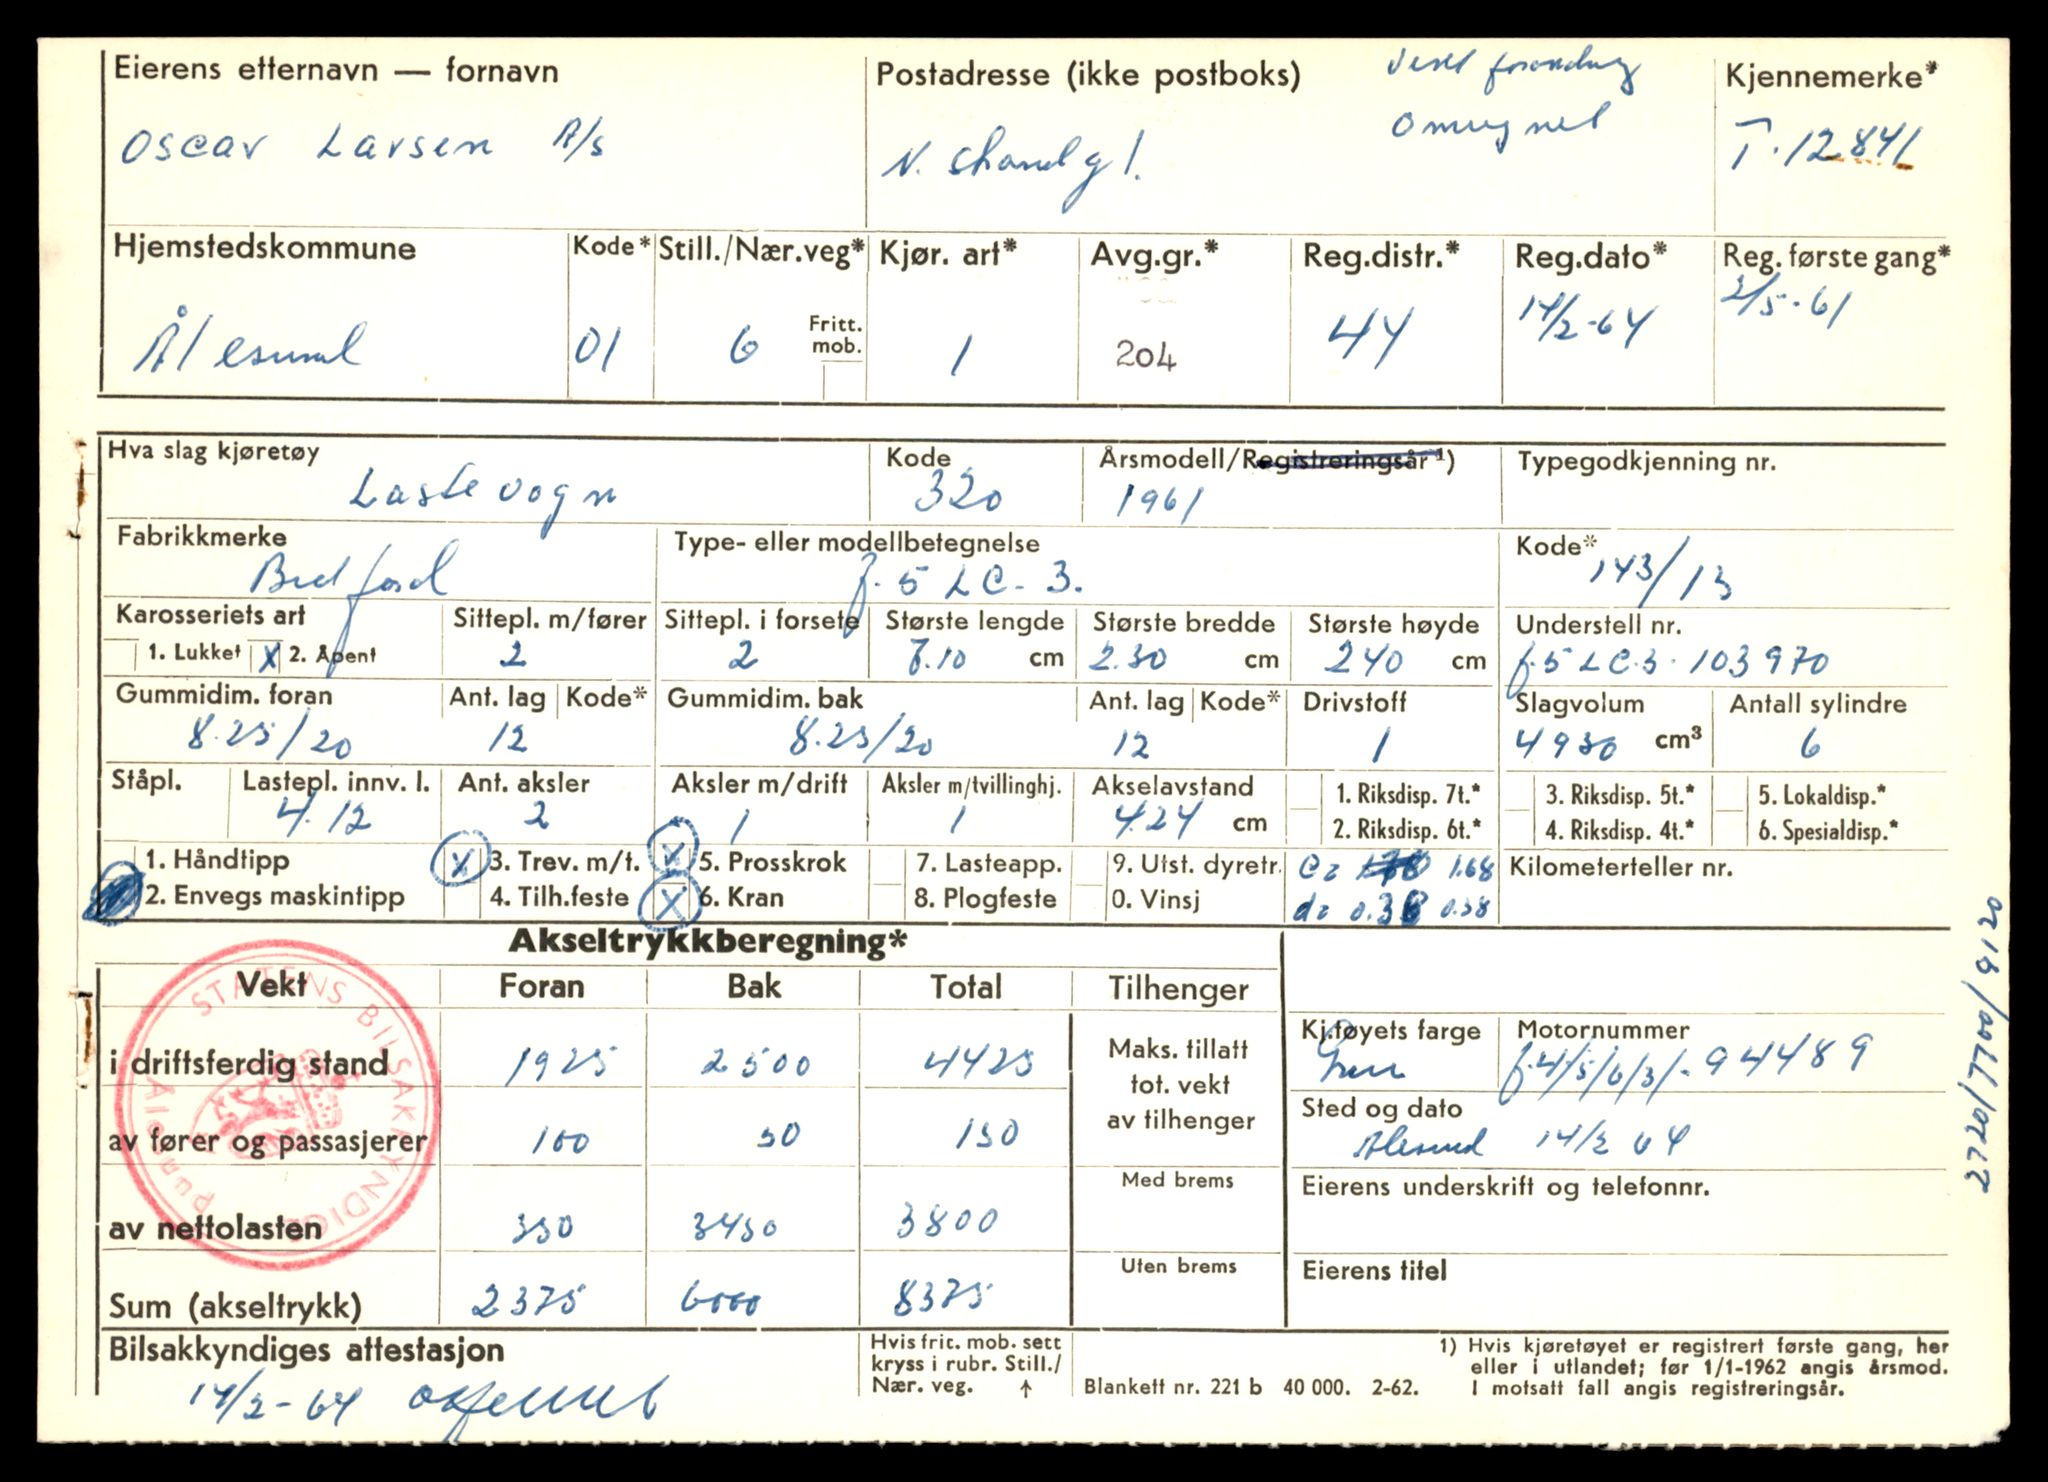 Eierens etternavn — fornavn
Oscar Larsen A/s
Postadresse (ikke postboks)
N. Strandg 1.
Omregnet
Kjennemerke*
T-12841
Hjemstedskommune
Ålesund
Kode*
01
Still./Nær.veg*
6
Fritt. mob.
Kjør. art*
1
Avg.gr.*
204
Reg.distr.*
44
Reg.dato*
14/2-64
Reg. første gang*
2/5-61
Hva slag kjøretøy
Lastevogn
Kode
320
Årsmodell/Registreringsår ¹)
1961
Typegodkjenning nr.
Fabrikkmerke
Bedford
Type- eller modellbetegnelse
J. 5 LC-3.
Kode*
143/13
Karosseriets art
1. Lukket X 2. Åpent
Sittepl. m/fører
2
Sittepl. i forsete
2
Største lengde
7.10 cm
Største bredde
2.30 cm
Største høyde
240 cm
Understell nr.
J.5 LC.3-103970
Gummidim. foran
8.25/20
Ant. lag
12
Kode*
Gummidim. bak
8.25/20
Ant. lag
12
Kode*
Drivstoff
1
Slagvolum
4930 cm³
Antall sylindre
6
Ståpl.
Lastepl. innv. l.
4.12
Ant. aksler
2
Aksler m/drift
1
Aksler m/tvillinghj.
1
Akselavstand
424 cm
1. Riksdisp. 7t.*
2. Riksdisp. 6t.*
3. Riksdisp. 5t.*
4. Riksdisp. 4t.*
5. Lokaldisp.*
6. Spesialdisp.*
1. Håndtipp
2. Envegs maskintipp
X 3. Trev. m/t.
4. Tilh.feste
X 5. Prosskrok
X 6. Kran
7. Lasteapp.
8. Plogfeste
9. Utst. dyretr.
0. Vinsj
C= 1.68
d= 0.38
Kilometerteller nr.
Akseltrykkberegning*
Vekt Foran Bak Total Tilhenger
i driftsferdig stand 1925 2500 4425
av fører og passasjerer 100 50 150
av nettolasten 350 3450 3800
Sum (akseltrykk) 2375 6000 8375
Maks. tillatt
tot. vekt
av tilhenger
Med brems
Uten brems
STATENS BILSAKKYNDIGE
Ålesund
Kj.tøyets farge
Motornummer
J.4/5/6/3/-94489
Sted og dato
Ålesund 14/2 64
Eierens underskrift og telefonnr.
Eierens titel
2720/7700/9120
Bilsakkyndiges attestasjon
14/2-64
Hvis frit. mob. sett
kryss i rubr. Still./
Nær. veg. ↑
Blankett nr. 221 b 40 000. 2-62.
1) Hvis kjøretøyet er registrert første gang, her
eller i utlandet; før 1/1-1962 angis årsmod.
I motsatt fall angis registreringsår.